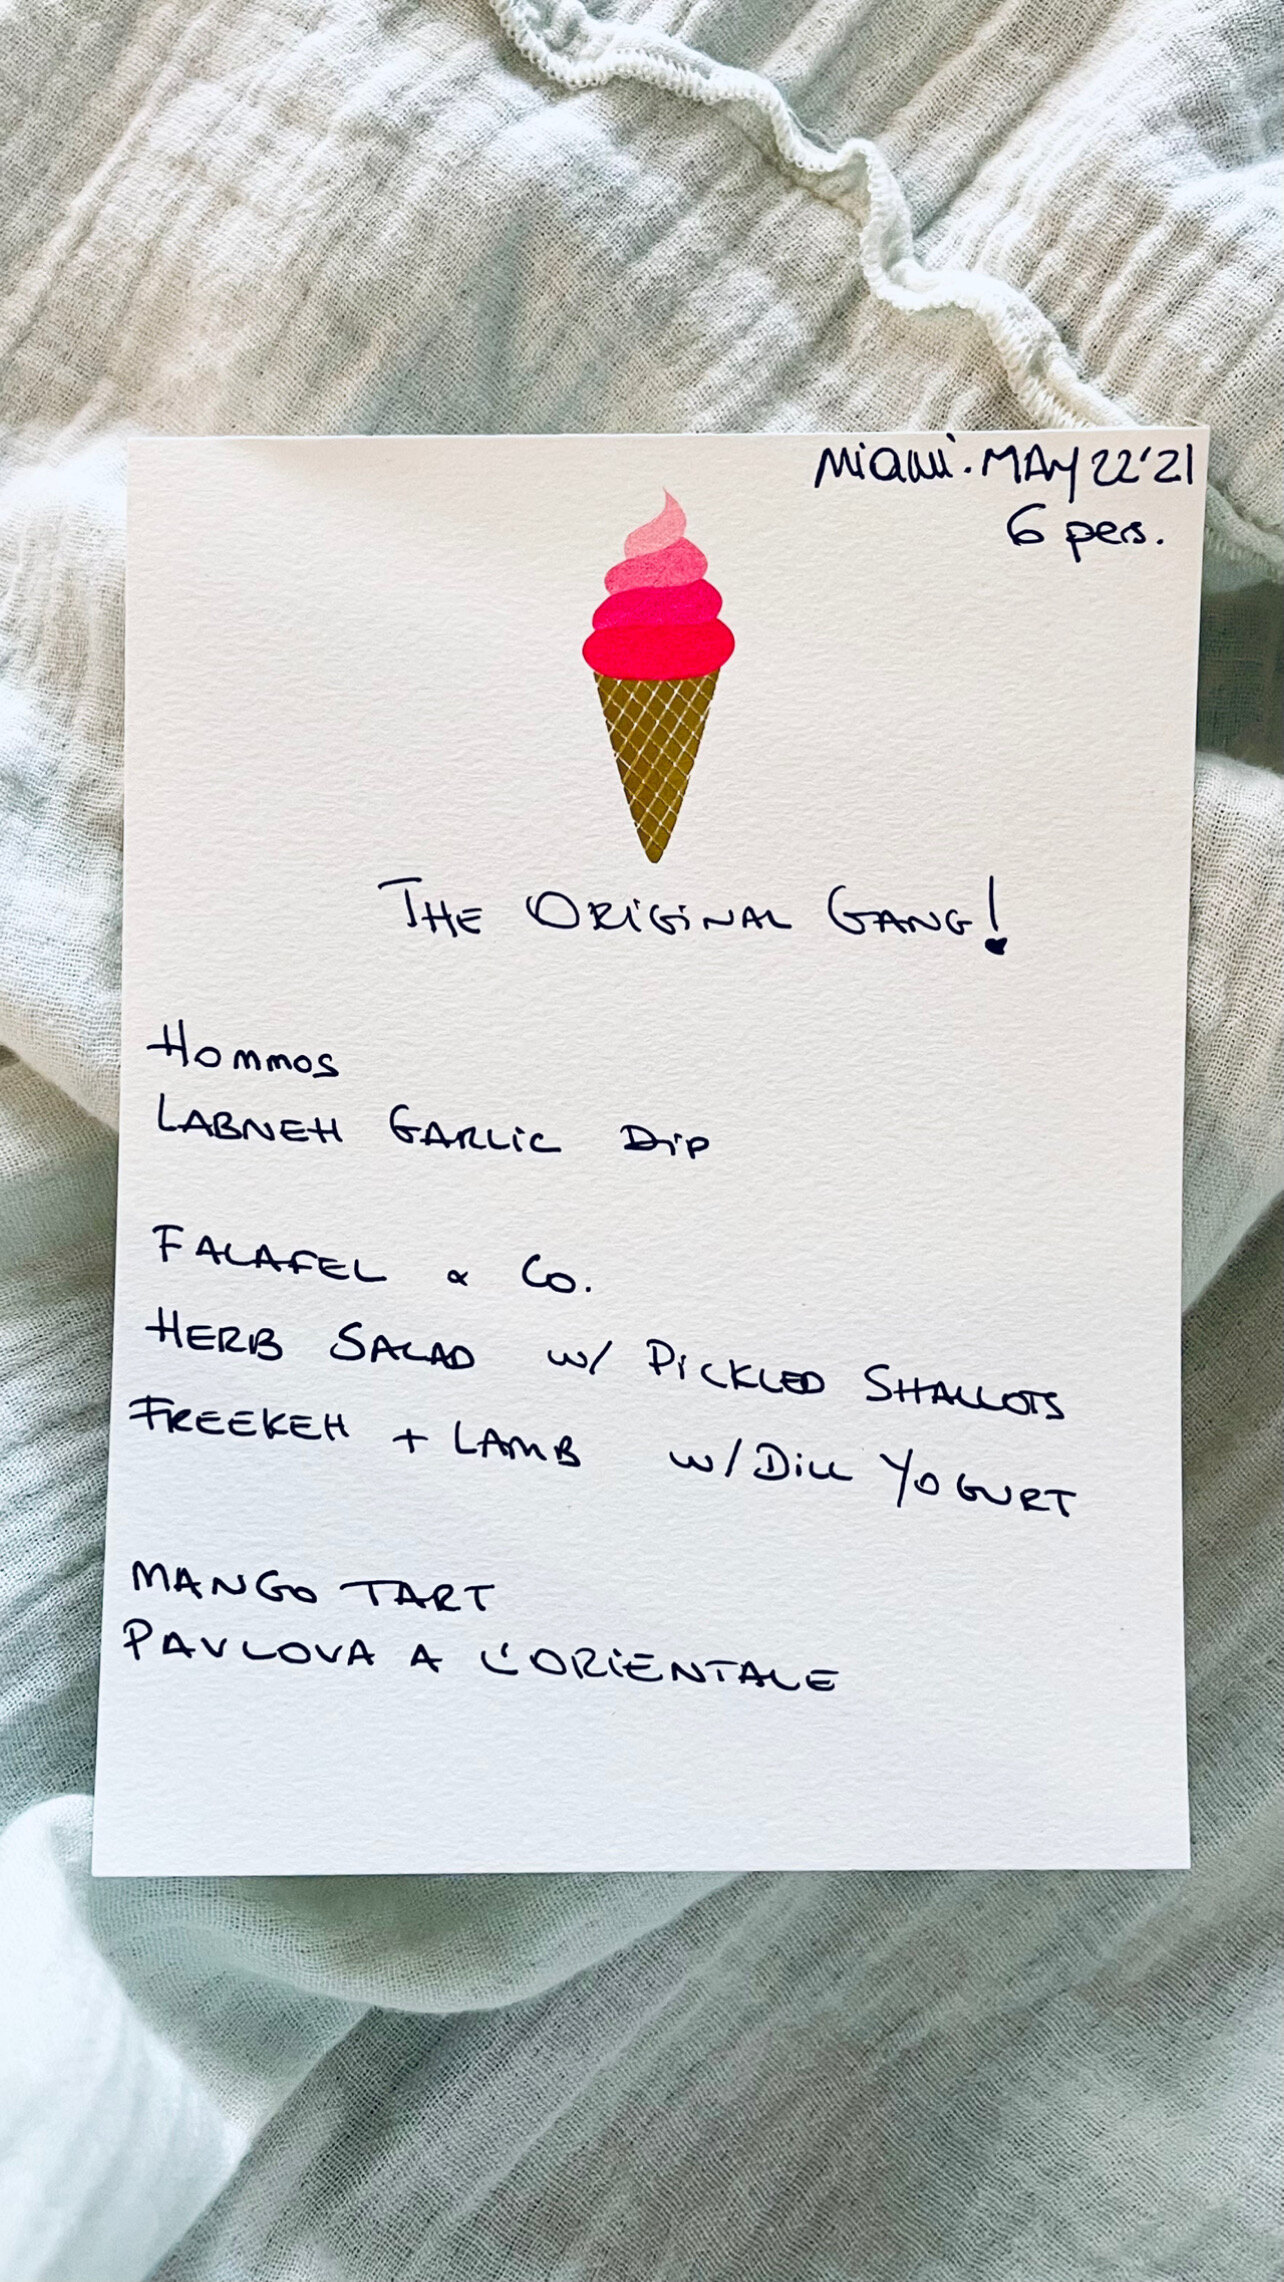 Miami. MAY 22'21
6 pers.
THE ORIGINAL GANG!
HOMMOS
LABNEH GARLIC DIP
FALAFEL & CO.
HERB SALAD W/ PICKLED SHALLOTS
FREEKEH + LAMB W/ DILL YOGURT
MANGO TART
PAVLOVA A L'ORIENTALE